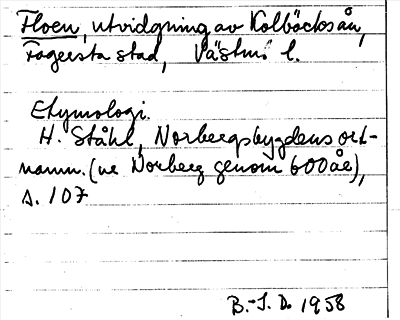 Floen, utvidgning av Kolbäcksån,
Fagersta stad, Västm. l.
Etymologi.
H. Ståhl, Norbergsbygdens ort-
namn. (ur Norberg genom 600 år),
s. 107
B.-S. D. 1958